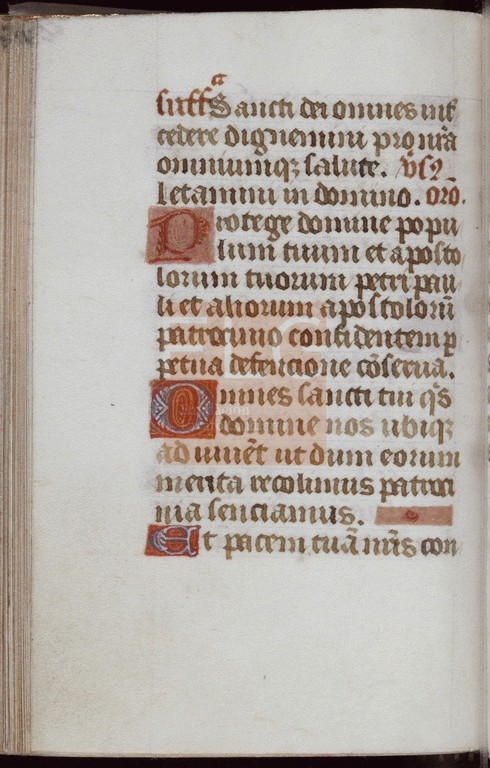 suffᵃ Sancti dei omnes int̄
cedere dignemini pro nr̄a
omniumqꝫ salute. v̄s
Letamini in domino. oro.
Protege domine popu
lum tuum et aposto
lorum tuorum petri pau
li et aliorum apostolorū
patrocinio confidentem ꝑ
petua defencione cōserua.
Omnes sancti tui q̄s
domine nos ubiqꝫ
adiuuēt ut dum eorum
merita recolimus patroci
nia senciamus.
Et pacem tuā nr̄is con